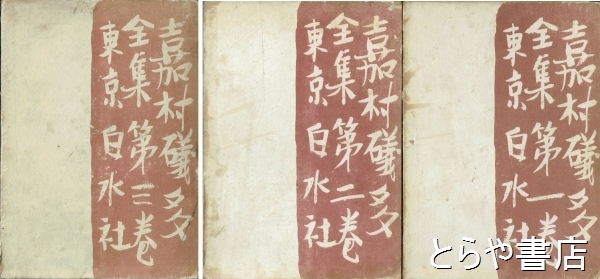 嘉村礒多
全集第一巻
東京白水社
嘉村礒多
全集第二巻
東京白水社
嘉村礒多
全集第三巻
東京白水社
とらや書店